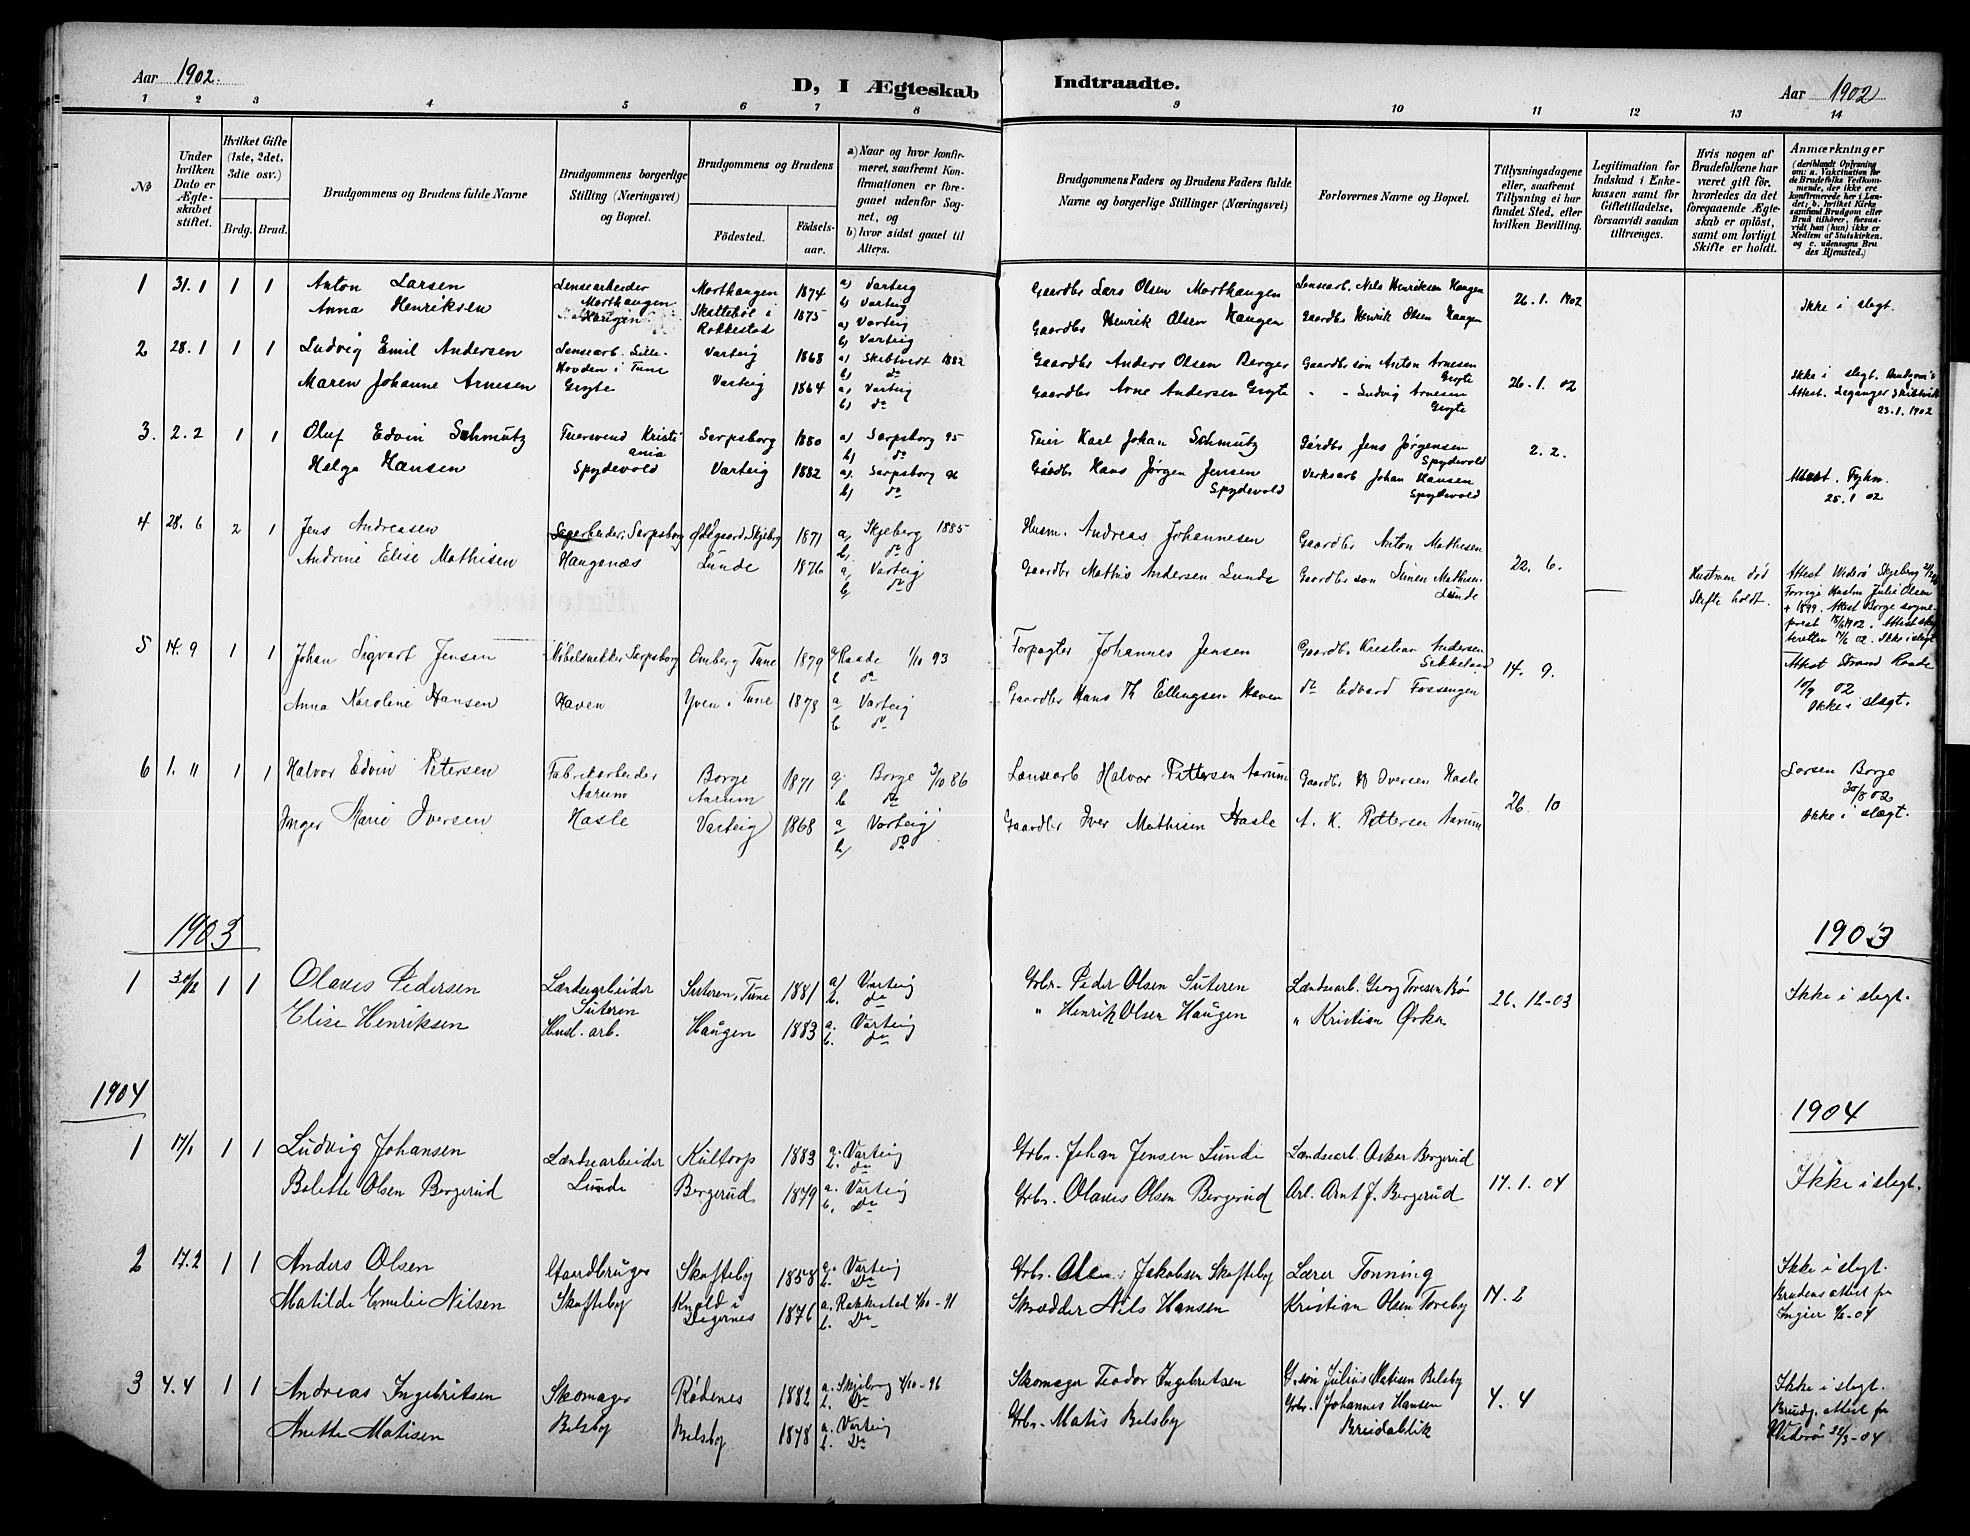 Aar 1902.
D, I Ægteskab Indtraadte.
Aar 1902
1 2 3 4 5 6 7 8 9 10 11 12 13 14
No
Under hvilken Dato er Ægteskabet stiftet.
Hvilket Gifte (1ste, 2det, 3die osv.)
Brdg. Brud.
Brudgommens og Brudens fulde Navne
Brudgommens borgerlige Stilling (Næringsvei) og Bopæl.
Brudgommens og Brudens
Fødested.
Fødselsaar.
a) Naar og hvor konfirmeret, saafremt Konfirmationen er foregaaet udenfor Sognet, og
b) hvor sidst gaaet til Alters.
Brudgommens Faders og Brudens Faders fulde Navne og borgerlige Stillinger (Næringsvei)
Forlovernes Navne og Bopæl.
Tillysningsdagene eller, saafremt Tillysning ei har fundet Sted, efter hvilken Bevilling.
Legitimation for Indskud i Enkekassen samt for Giftetilladelse, forsaavidt saadan tiltrænges.
Hvis nogen af Brudefolkene har været gift før, hvorledes da det foregaaende Ægteskab er opløst, samt om lovligt Skifte er holdt.
Anmærkninger
(deriblandt Oplysning om: a. Vakcination for de Brudefolks Vedkommende, der ikke ere konfirmerede her i Landet; b. hvilket Kirkesamfund Brudgom eller Brud tilhører, forsaavidt han (hun) ikke er Medlem af Statskirken. og c. udensogns Brudes Hjemsted.)
1 31.1 1 1 Anton Larsen Lensearbeider Morthaugen Morthaugen 1874 a) Varteig b) Varteig Gaardbr Lars Olsen Morthaugen Lensearb. Nils Henriksen Haugen 26.1.1902 Ikke i slegt.
Anna Henriksen Haugen Skattebøl i Rokkestad 1875 a) Varteig b) Varteig Gaardbr Henrik Olsen Haugen Gaardbr Henrik Olsen Haugen
2 28.1 1 1 Ludvig Emil Andersen Lensearb. Lille-Hovden i Tune Varteig 1868 a) Skibtvedt 1882 b) do Gaardbr Anders Olsen Berger Gaardbr søn Anton Arnesen Gryte 26.1.02 Ikke i slegt. Brudgom's Attest. 23.1.1902
Maren Johanne Arnesen Gryte Varteig 1864 a) Varteig b) do Gaardbr Arne Andersen Gryte " " Ludvig Arnesen Gryte
3. 2.2 1 1 Oluf Edvin Schmutz Feiersvend Kristiania Sarpsborg 1880 a) Sarpsborg 95 b) do Feier Karl Johan Schmutz Gårdbr Jens Jørgensen Spydevold 2.2.
Helga Hansen Spydevold Varteig 1882 a) Sarpsborg 96 b) do Gårdbr Hans Jørgen Jensen Spydevold Verksarb Johan Hansen Spydevold Attest. 25.1 02
4 28.6 2 1 Jens Andreasen Sarpsborg Skjeberg 1871 a) Skjeberg 1885 b) do Husm. Andreas Johannesen Gaardbr Anton Mathisen 22.6.
Andrine Elise Mathisen Haugenæs Lunde 1876 a) Varteig b) do Gaardbr Mathis Andersen Lunde Gaardbr søn Simen Mathisen Lunde Hustruen død Skifte holdt. Attest Widerø Skjeberg Forrige Hustru Julie Olsen + 1899. Attest Borge sogneprest 15/6 1902. Attest skifteretten 17/6 02. Ikke i slegt
5 14.9 1 1 Johan Sigvart Jensen Møbelsnekker Sarpsborg Omberg Tune 1879 a Raade 1/10 93 b do Forpagter Johannes Jensen Gaardbr Kristian Andersen 14.9. Attest Strand Raade 10/9 02 Ikke i slegt.
Anna Karoline Hansen Haven Yven i Tune 1878 a Varteig b do Gaardbr Hans Th Ellingsen Haven do Edvard Fossengen
6 1.11 1 1 Halvor Edvin Petersen Fabrikarbeider Aarum Borge Aarum 1871 a. Borge 3/10 86 b do Lensearb Halvor Pettersen Aarum Gaardbr Iversen Hasle 26.10 Larsen Borge 02 Ikke i slægt.
Inger Marie Iversen Hasle Varteig 1868 a Varteig b) do Gaardbr Iver Mathisen Hasle A. K. Pettersen Aarum
1903 1903
1 30/12 1 1 Olaves Pedersen Lændsearbeider Suteren Suteren, Tune 1881 a) Varteig b. do Grbr. Peder Olsen Suteren Lændsearb. Georg Toresen Bø 26.12-03 Ikke i slegt.
Elise Henriksen Husl. arb. Haugen 1883 a. Varteig b. do " Henrik Olsen Haugen " Kristian Ørka
1904 1904
1 17/1 1 1 Ludvig Johansen Lændsearbeider Lunde Kultorp 1883 a. Varteig b. do Grbr. Johan Jensen Lunde Lændsearb. Oskar Bergerud 17.1.04 Ikke i slegt.
Bolette Olsen Bergerud Bergerud 1879 a. Varteig b. Do Grbr. Olaves Olsen Bergerud Arb. Arnt J. Bergerud
2 17.2 1 1 Anders Olsen Gaardbruger Skofteby Skofteby 1858 a. Varteig b. Do Grbr. Ole Jakobsen Skofteby Lærer Tonning 14.2 Ikke i slegt.
Matilde Emelie Nilsen Knold i Degernes 1876 a. Rakkestad 1/10-91 b. Do Skrædder Nils Hansen Kristian Olsen Toreby Brudens attest fra Ingier 9/2-04
3 4.4 1 1 Andreas Ingebritsen Skomager Belsby Rødenes 1882 a. Skjeberg 4/10-96 b. Do Skomager Teodor Ingebretsen G.søn Julius Matisen Belsby 4.4 Ikke i slegt.
Anette Matisen Belsby 1878 a. Varteig b. Do Grbr. Matis Belsby Grbr. Johannes Hansen Breidablik Brudg. attest fra Widerøe 22/3-04